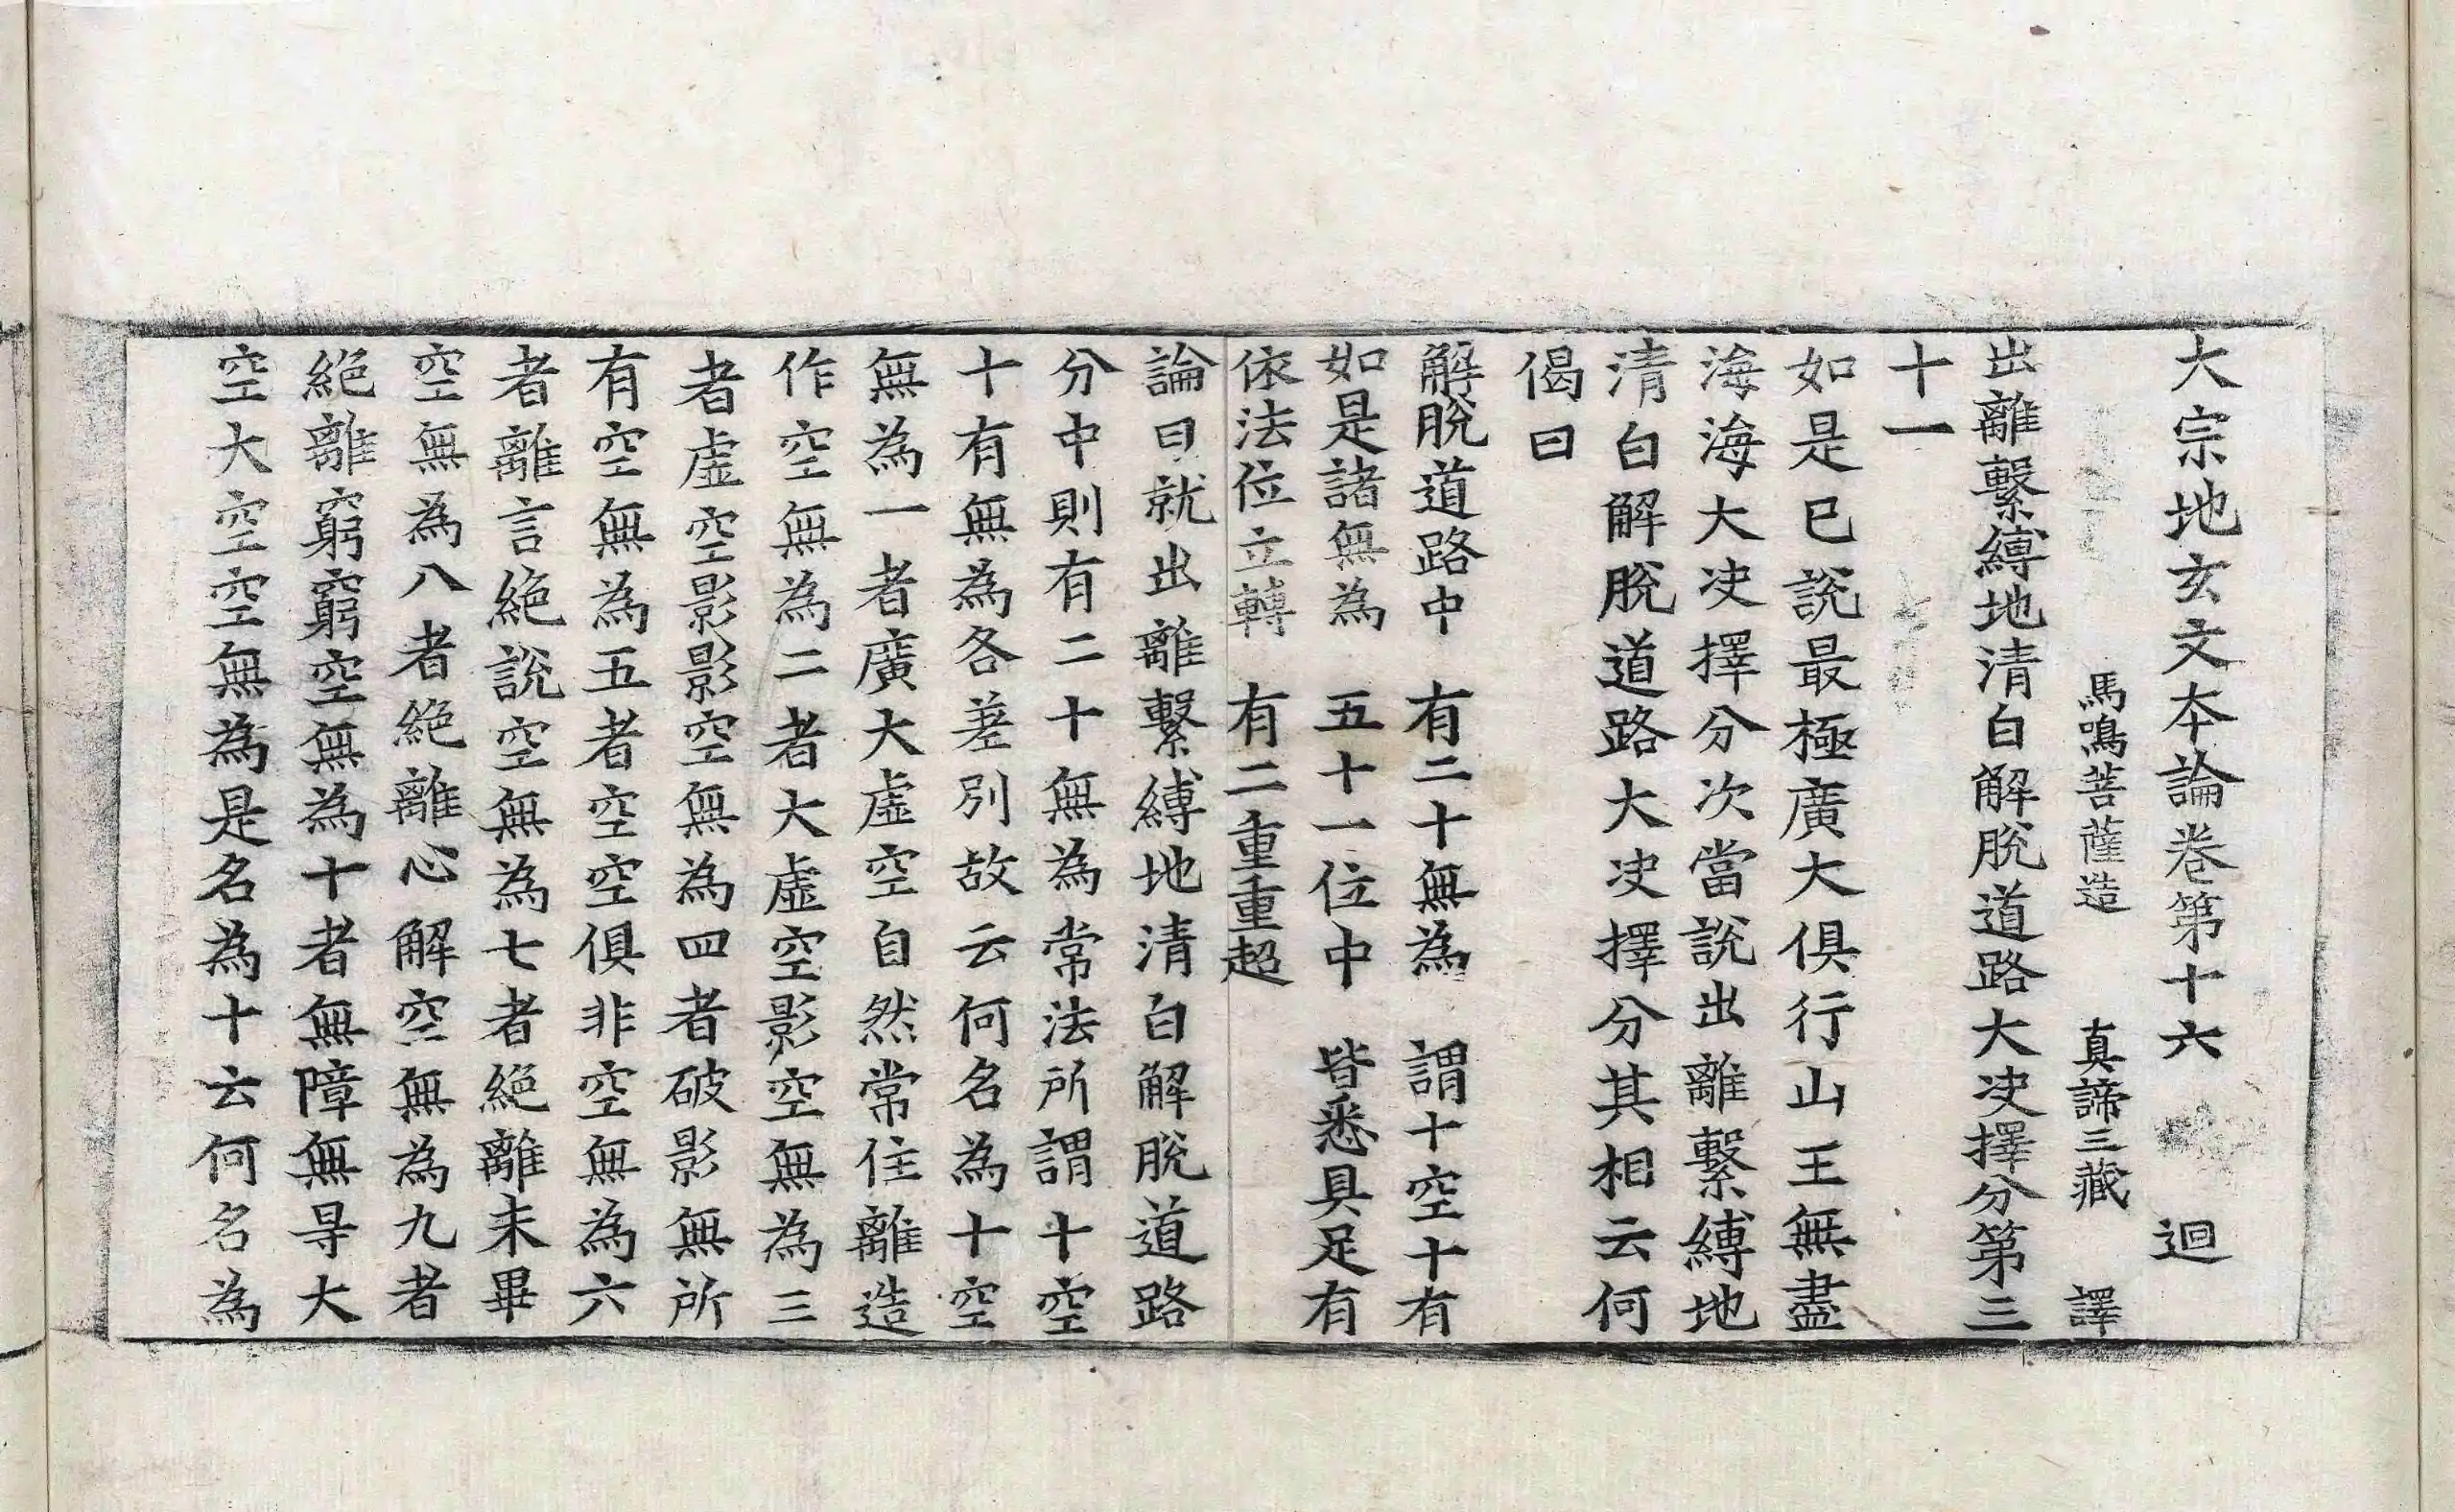 大宗地玄文本論卷第十六 迴
馬鳴菩薩造 真諦三藏 譯
出離繫縛地清白解脫道路大决擇分第三
十一
如是已說最極廣大俱行山王無盡
海海大决擇分次當說出離繫縛地
清白解脫道路大决擇分其相云何
偈曰
解脫道路中 有二十無為 謂十空十有
如是諸無為 五十一位中 皆悉具足有
依法位立轉 有二重重超
論曰就出離繫縛地清白解脫道路
分中則有二十無為常法所謂十空
十有無為各差別故云何名為十空
無為一者廣大虛空自然常住離造
作空無為二者大虛空影空無為三
者虛空影影空無為四者破影無所
有空無為五者空空俱非空無為六
者離言絕說空無為七者絕離未畢
空無為八者絕離心解空無為九者
絕離窮窮空無為十者無障無㝵大
空大空空無為是名為十云何名為